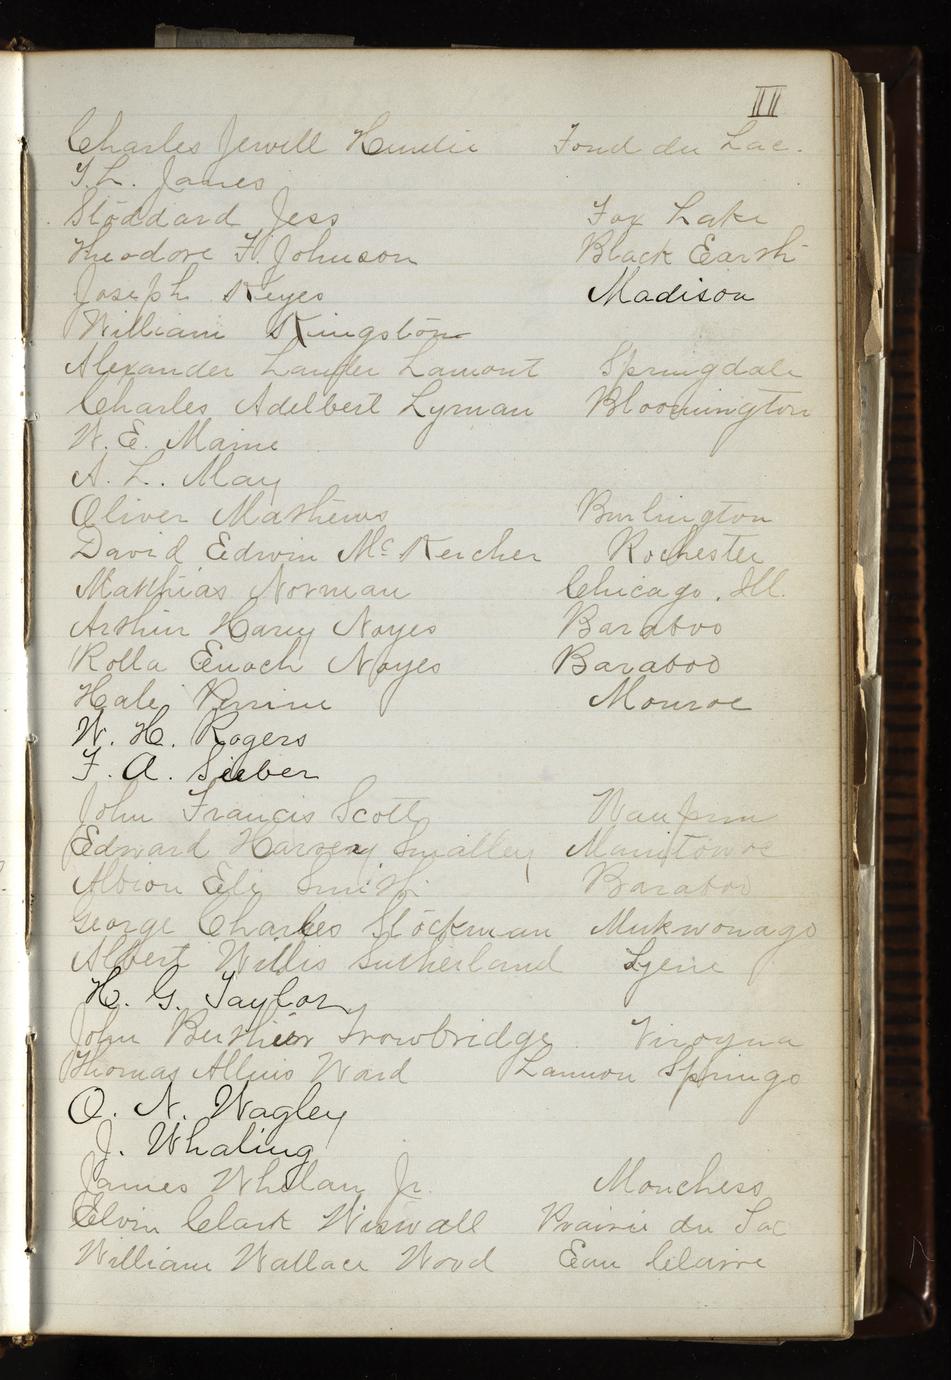 II
Charles Jewell Hendee Fond du Lac.
T. L. Janes
Stoddard Jess Fox Lake
Theodore F. Johnson Black Earth
Joseph Keyes Madison
William Kingston
Alexander Lander Lamont Springdale
Charles Adelbert Lyman Bloomington
W. E. Maine
A. L. May
Oliver Mathews Burlington
David Edwin McKercher Rochester
Matthias Norman Chicago, Ill.
Arthur Harry Noyes Baraboo
Rolla Enoch Noyes Baraboo
Hale Perrine Monroe
W. H. Rogers
F. A. Sieber
John Francis Scott Waupun
Edward Harvey Smalley Manitowoc
Albion Eli Smith Baraboo
George Charles Stockman Mukwonago
Albert Willis Sutherland
H. G. Taylor
John Trowbridge Viroqua
Thomas Ward Lannon Springs
O. N. Wagley
J. Whaling
James Whelan Jr. Monchess
Elvin Clark Wiswall Prairie du Sac
William Wallace Wood Eau Claire